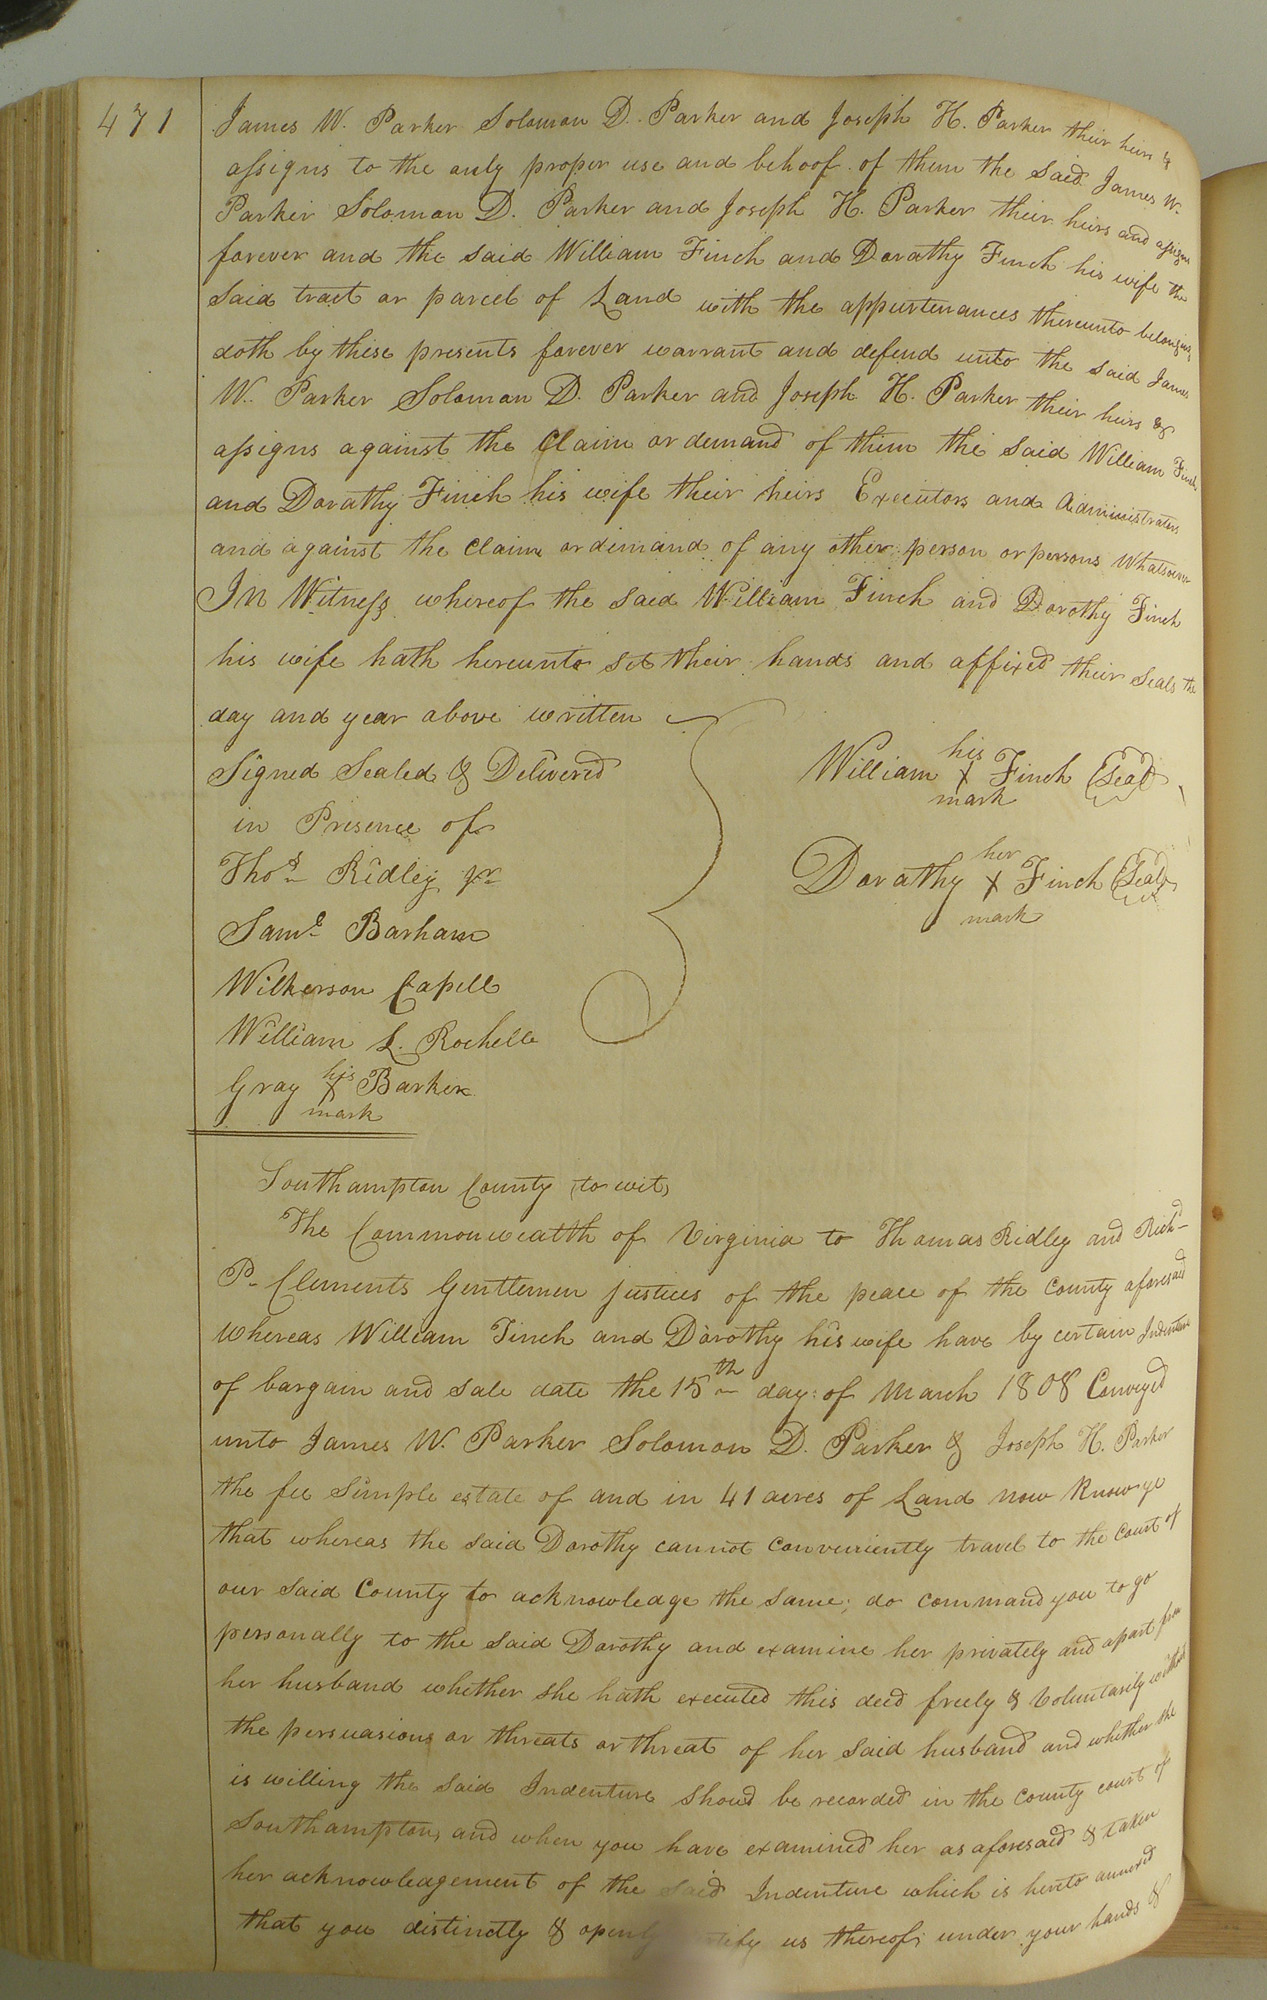 471
James W. Parker Solomon D. Parker and Joseph H. Parker their heirs &
assigns to the only proper use and behoof of them the said James W.
Parker Solomon D. Parker and Joseph H. Parker their heirs and assigns
forever and the said William Finch and Dorathy Finch his wife the
said tract or parcel of Land with the appurtenances thereunto belonging
doth by these presents forever warrant and defend unto the said James
W. Parker Soloman D. Parker and Joseph H. Parker their heirs &
assigns against the Claim or demand of them the said William Finch
and Dorathy Finch his wife their heirs Executors and Administrators
and against the Claim or demand of any other person or persons Whatsoever
In Witness whereof the said William Finch and Dorothy Finch
his wife hath hereunto set their hands and affixed their seals the
day and year above written
Signed Sealed & Delivered
in Presence of
Thos. Ridley jr
Saml. Barham
Wilkerson Capell
William L. Rochelle
Gray his X mark Barker
William his X mark Finch (Seal)
Dorathy her X mark Finch (Seal)
Southampton County to wit,
The Commonwealth of Virginia to Thomas Ridley and Richd.
P. Clements Gentlemen justices of the peace of the County aforesaid
Whereas William Finch and Dorothy his wife have by certain Indenture
of bargain and sale date the 15th day of March 1808 Conveyed
unto James W. Parker Solomon D. Parker & Joseph H. Parker
the fee Simple estate of and in 41 acres of Land now Know ye
that whereas the said Dorothy cannot conveniently travel to the Court of
our said County to acknowledge the same; do command you to go
personally to the said Dorothy and examine her privately and apart from
her husband whether she hath executed this deed freely & Voluntarily without
the persuasions or threats or threat of her said husband and whether she
is willing the said Indenture shoud be recorded in the County court of
Southampton, and when you have examined her as aforesaid & taken
her acknowledgement of the said Indenture which is hereto annexed
that you distinctly & openly us thereof, under your hands &